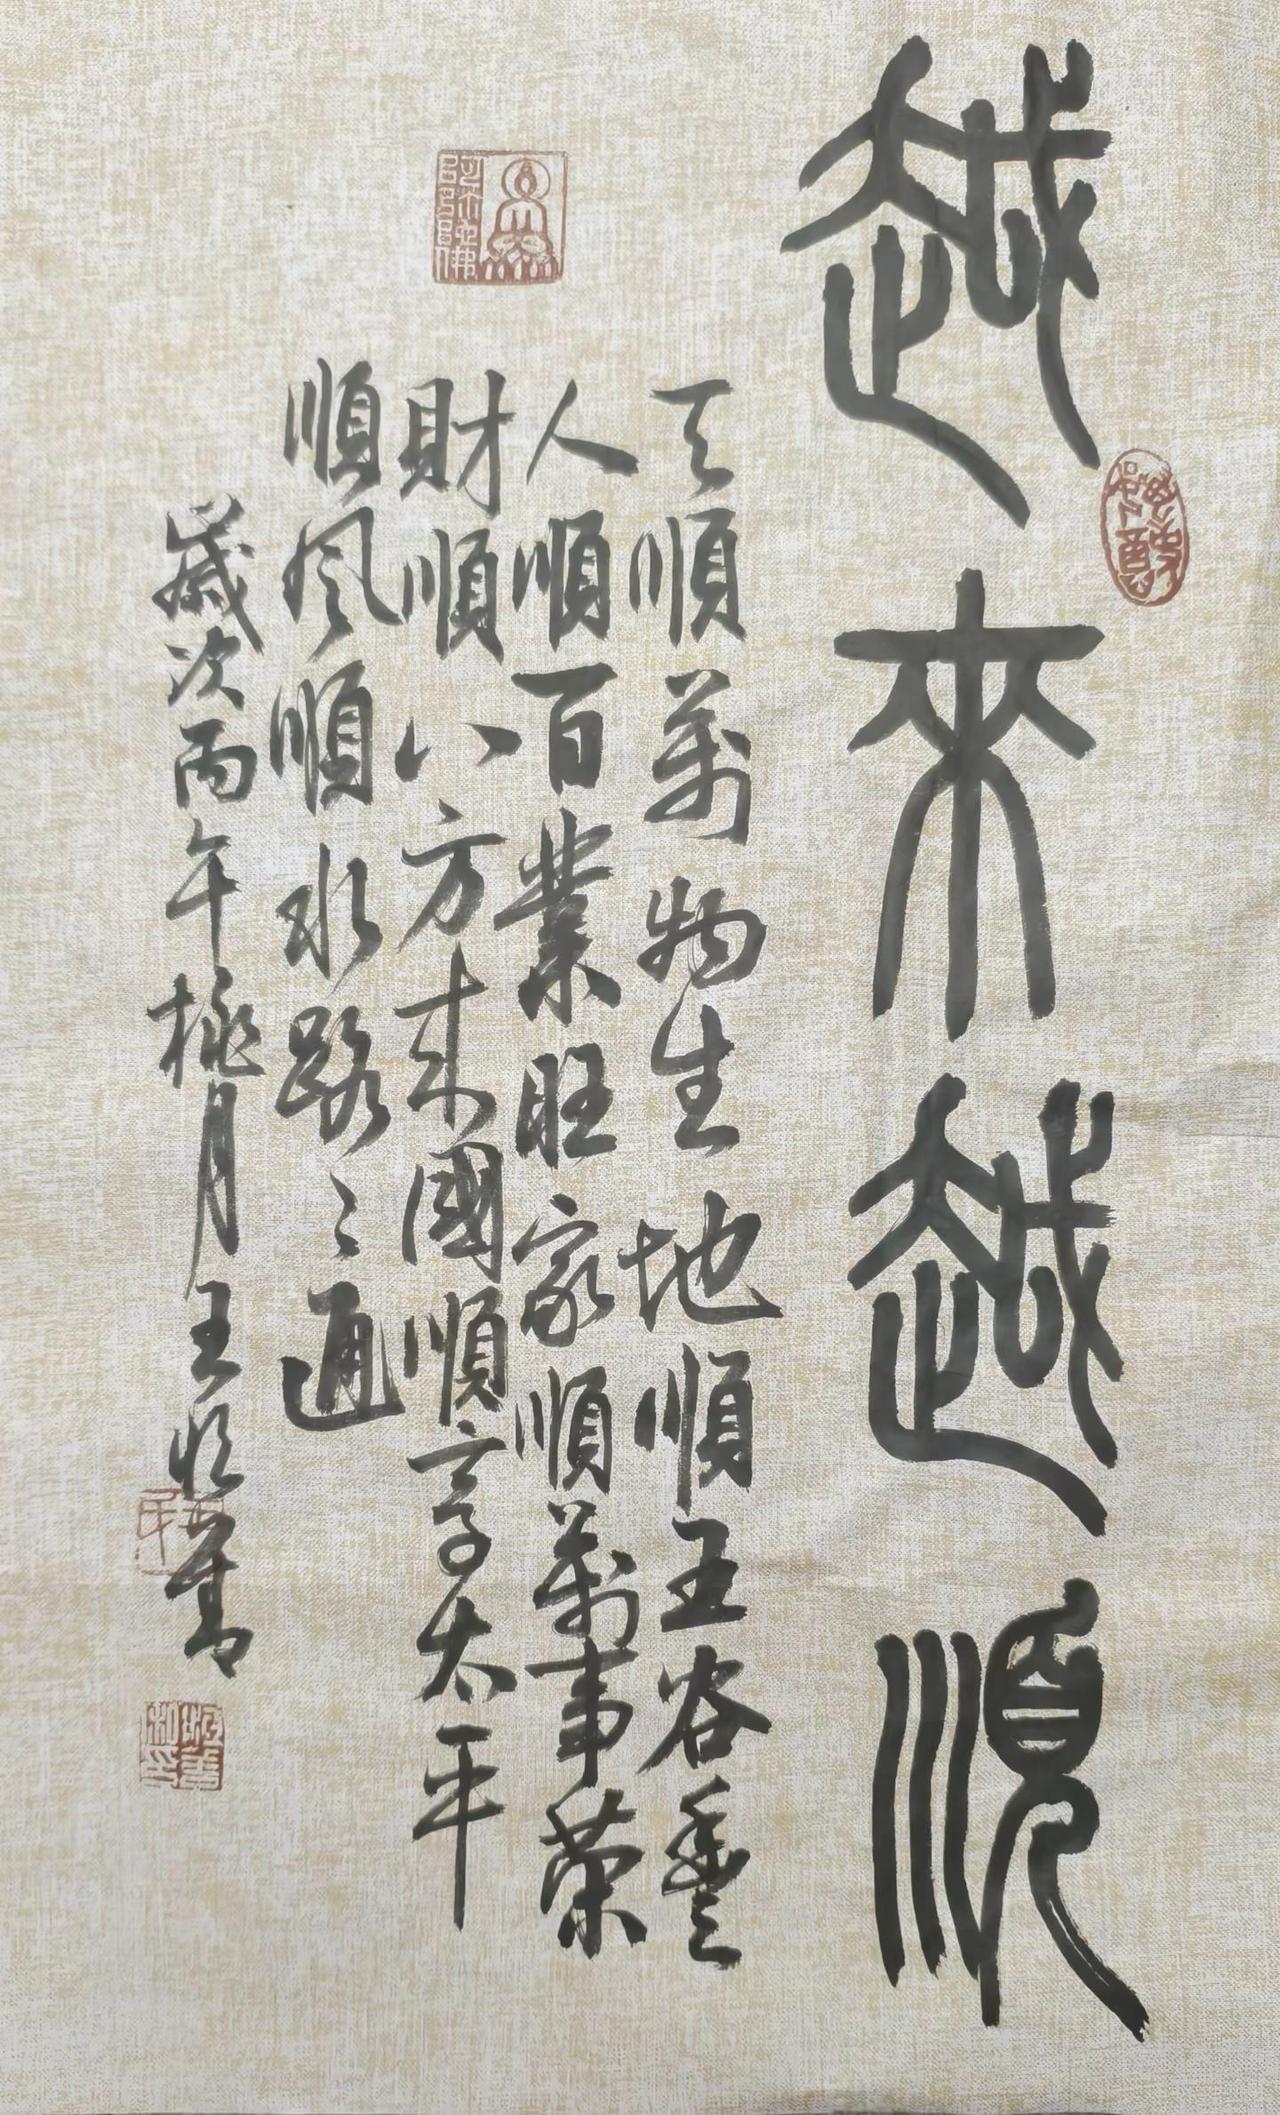 越來越順
天順萬物生地順五谷豐
人順百業旺家順萬事榮
財順八方來國順享太平
順風順水路々通
歲次丙午桃月王
阿彌陀佛